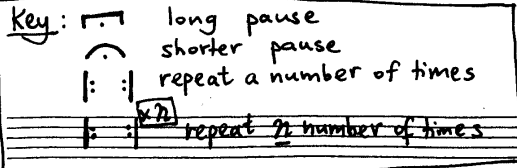 Key: long pause
shorter pause
repeat a number of times
×n repeat n number of times